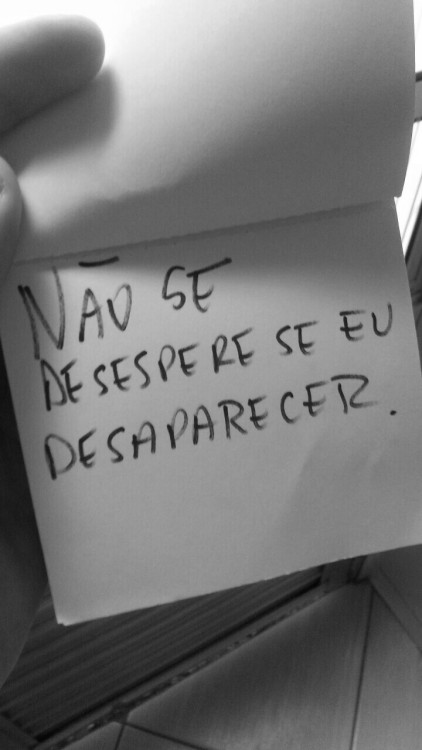 NÃO SE
DESESPERE SE EU
DESAPARECER.